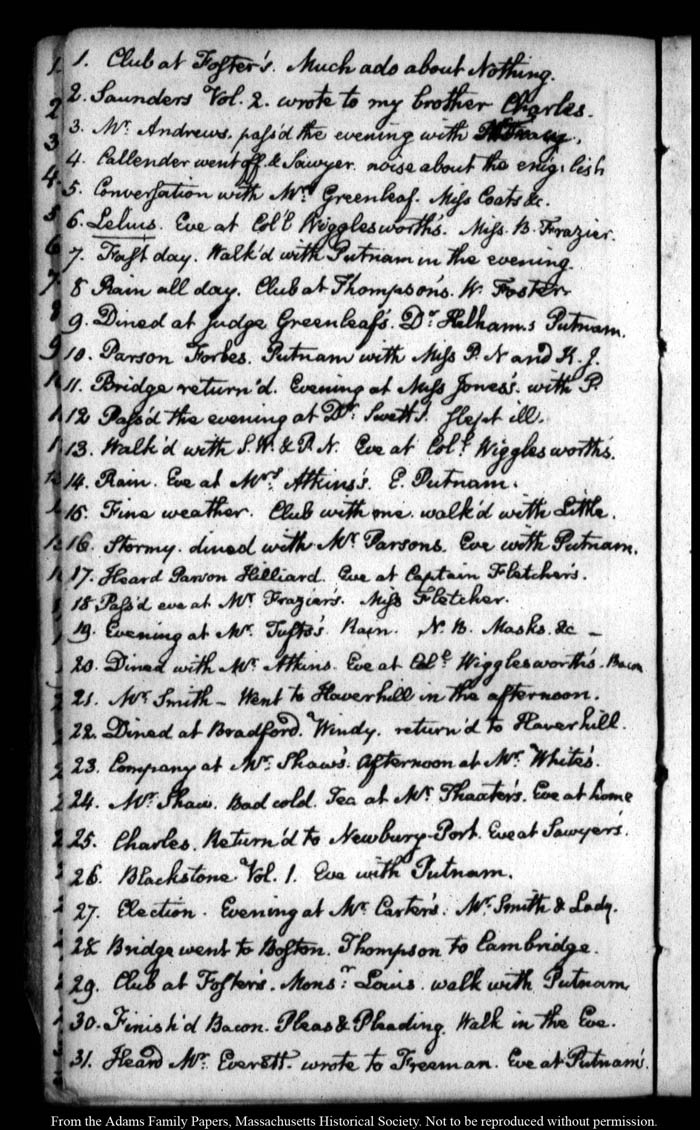 1. Club at Foster's. Much ado about Nothing.
2. Saunders Vol. 2. wrote to my brother Charles.
3. Mr. Andrews. pass'd the evening with
4. Callender went off. & Sawyer. noise about the english
5. Conversation with Mr. Greenleaf. Miss Coats &c.
6. Lelius. Eve at Coll. Wigglesworth's. Miss. B. Frazier.
7. Fast day. Walk'd with Putnam in the evening.
8 Rain all day. Club at Thompson's. W. Foster
9. Dined at Judge Greenleaf's. Dr. Putnam.
10. Parson Forbes. Putnam with Miss P. N and K. J.
11. Bridge return'd. Evening at Miss Jones's. with P.
12 Pass'd the evening at Dr. Swett's. slept ill.
13. Walk'd with S. W. & P. N. Eve at Coll. Wigglesworth's.
14. Rain. Eve at Mrs. Atkins's. E. Putnam.
15. Fine weather. Club with me. walk'd with Little.
16. Stormy. dined with Mr. Parsons. Eve with Putnam.
17. Heard Parson Hilliard. Eve at Captain Fletcher's.
18 Pass'd eve at Mr. Frazier's. Miss Fletcher.
19. Evening at Mr. Tufts's. Rain. N. B. Masks. &c —
20. Dined with Mr. Atkins. Eve at Coll. Wigglesworth's. Bacon
21. Mr. Smith — Went to Haverhill in the afternoon.
22. Dined at Bradford. Windy. return'd to Haverhill.
23. Company at Mr. Shaw's. afternoon at Mr. White's.
24. Mr. Shaw. Bad cold. Tea at Mr. Thaxter's. Eve at home
25. Charles. Return'd to Newbury-Port. Eve at Sawyer's.
26. Blackstone. Vol. 1. Eve with Putnam.
27. Election. Evening at Mr. Carter's. Mr. Smith & Lady.
28 Bridge went to Boston. Thompson to Cambridge.
29. Club at Foster's. Monsr. Louis. walk with Putnam
30. Finish'd Bacon. Pleas & Pleading. Walk in the Eve.
31. Heard Mr. Everett. wrote to Freeman. Eve at Putnam's.
From the Adams Family Papers, Massachusetts Historical Society. Not to be reproduced without permission.